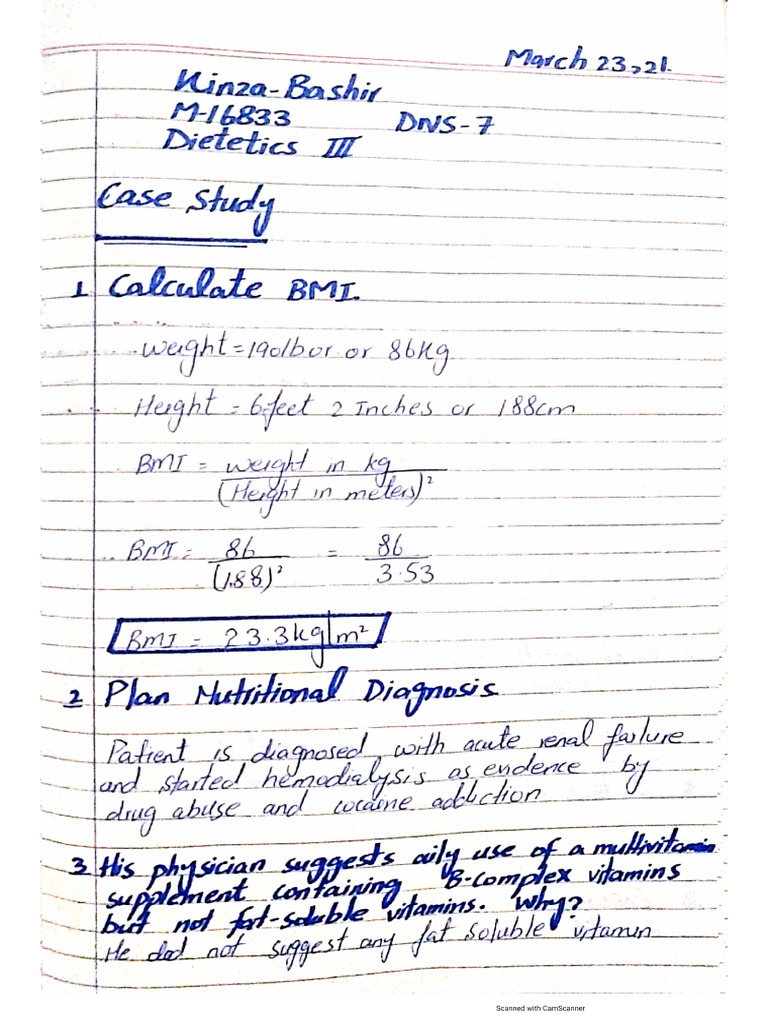 March 23,21.
Kinza-Bashir
M-16833 DNS-7
Dietetics III
Case Study
1 Calculate BMI.
Weight = 190lb or or 86Kg
Height = 6-feet 2 Inches or 188cm
BMI = weight in kg
(Height in meters)²
BMI = 86 = 86
(1.88)² 3.53
BMI = 23.3kg/m²
2 Plan Nutritional Diagnosis
Patient is diagnosed with acute renal failure
and started hemodialysis as evidence by
drug abuse and cocaine addiction
3 His physician suggests aily use of a multivitamin
supplement containing B-complex vitamins
but not fat-soluble vitamins. Why?
He did not suggest any fat soluble vitamin
Scanned with CamScanner